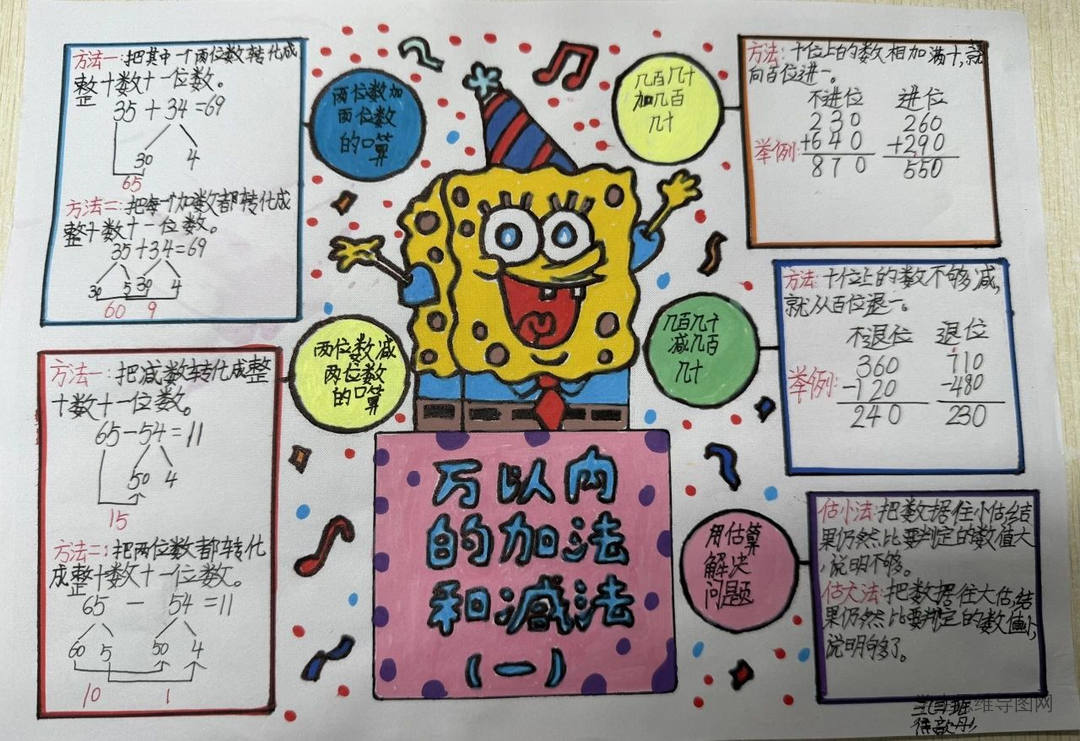 方法一:把其中一个两位数转化成
整十数十一位数。
35+34=69
30 4
65
方法二:把每一个加数都转化成
整十数十一位数。
35+34=69
30 5 30 4
60 9
两位数加
两位数
的口算
几百几十
加几百
几十
方法:十位上的数相加满十,就
向百位进一。
不进位 进位
230 260
举例:+640 +290
870 550
方法:十位上的数不够减,
就从百位退一。
不退位 退位
360 710
举例:-120 -480
240 230
几百几十
减几百
几十
两位数减
两位数
的口算
方法一:把减数转化成整
十数十一位数。
65-54=11
50 4
15
方法二:把两位数都转化
成整十数十一位数。
65 - 54=11
60 5 50 4
10 1
万以内
的加法
和减法
(一)
用估算
解决
问题
估小法:把数据往小估,结
果仍然比要判定的数值大
,说明不够。
估大法:把数据往大估,结
果仍然比要判定的数值小,
说明够了。
思维导图网